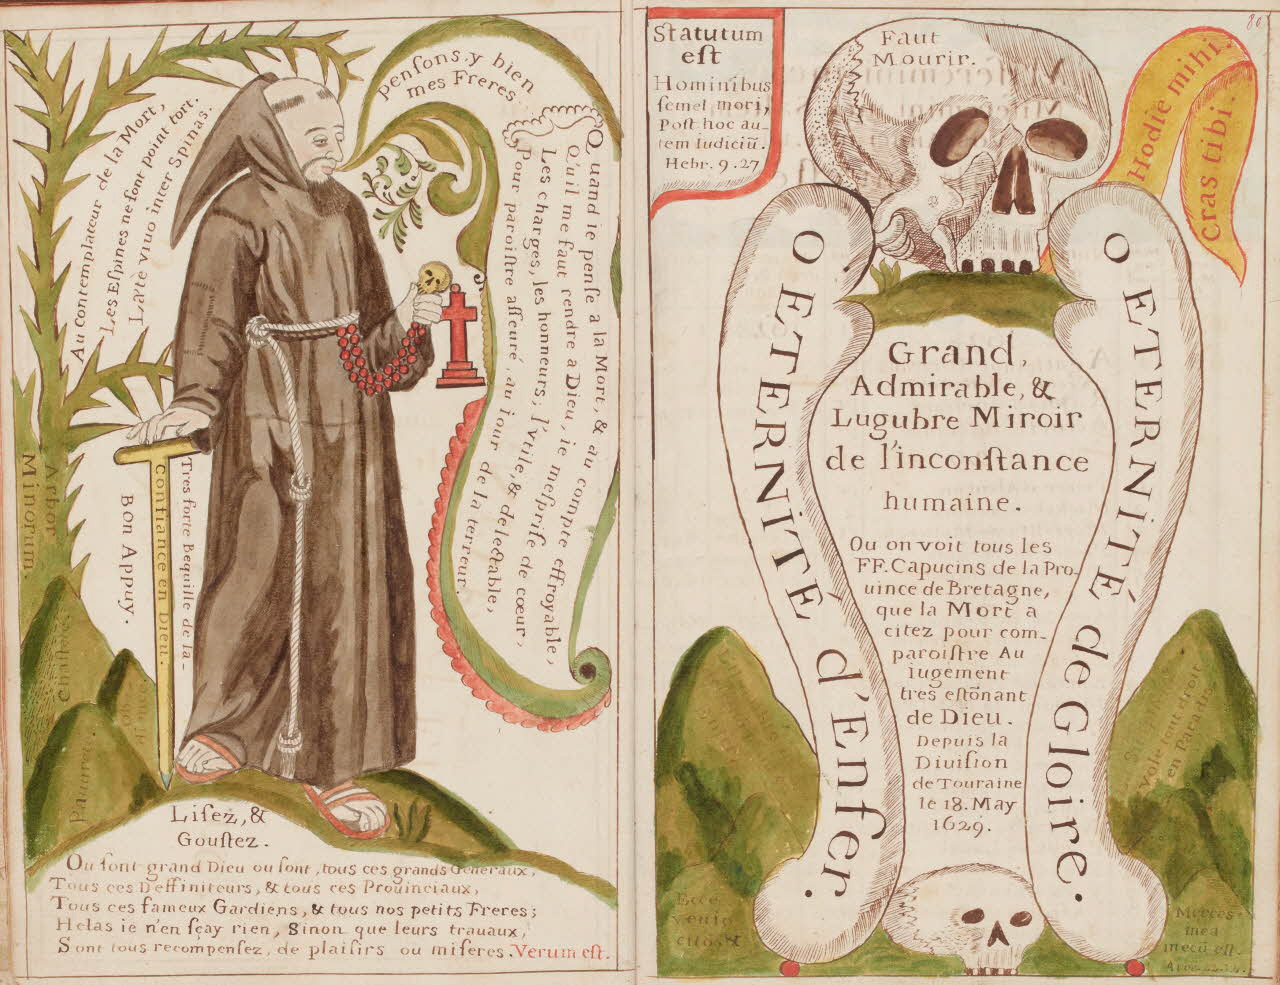 pensons. y bien
mes Freres
Au Contemplateur de la Mort,
Les Espines ne sont point tort.
Læte viuo inter Spinas.
Quand ie pense a la Mort, & au compte effroyable,
Qu'il me faut rendre a Dieu, ie mesprise de cœur,
Les charges, les honneurs; l'vtile, & delectable,
Pour paroistre asseuré, au iour de la terreur.
Arbor
Minorum.
Bon Appuy.
confiance en Dieu.
Tres forte Bequille de la-
Chasteté.
Pauureté.
Lisez, &
Goustez.
Ou sont grand Dieu ou sont, tous ces grands Generaux,
Tous ces Deffiniteurs, & tous ces Prouinciaux,
Tous ces fameux Gardiens, & tous nos petits Freres;
Helas ie n'en sçay rien, Sinon que leurs trauaux,
Sont tous recompensez, de plaisirs ou miseres. Verum est.
80
Statutum
est
Hominibus
semel mori,
Post hoc au-
tem Iudiciũ.
Hebr. 9. 27
Faut
Mourir.
Hodie mihi.
Cras tibi.
O ETERNITÉ d'Enfer.
O ETERNITÉ de Gloire.
Grand,
Admirable, &
Lugubre Miroir
de l'inconstance
humaine.
Ou on voit tous les
FF. Capucins de la Pro-
uince de Bretagne,
que la Mort a
citez pour com-
paroistre Au
iugement
tres estõnant
de Dieu.
Depuis la
Diuision
de Touraine
le 18. May
1629.
vole tout droit
en Paradis
Ecce
venio
cito, &
Merces
mea
mecũ est.